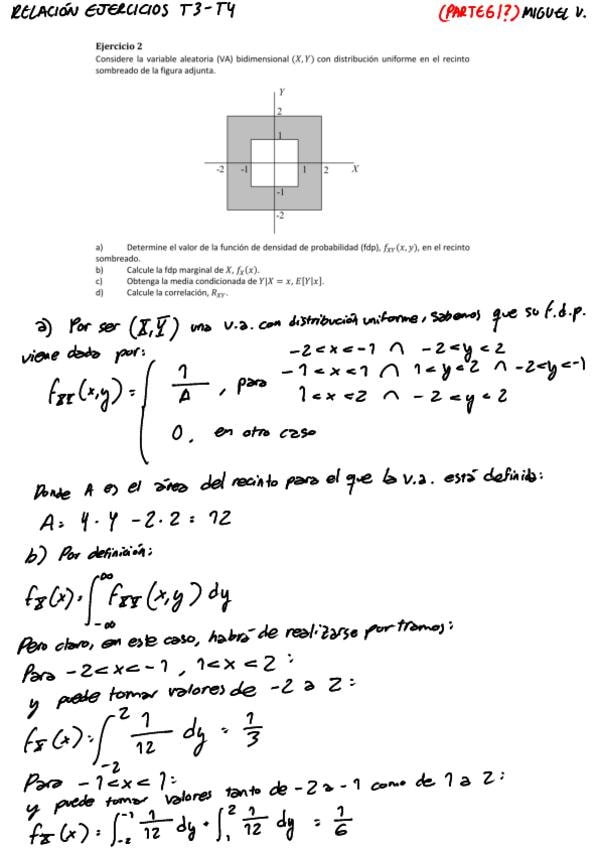 RELACIÓN EJERCICIOS T3-T4 (PARTE 6/?) MIGUEL V.
Ejercicio 2
Considere la variable aleatoria (VA) bidimensional (X,Y) con distribución uniforme en el recinto
sombreado de la figura adjunta.
Y
2
1
-2 -1 1 2 X
-1
-2
a) Determine el valor de la función de densidad de probabilidad (fdp), f_XY(x,y), en el recinto
sombreado.
b) Calcule la fdp marginal de X, f_X(x).
c) Obtenga la media condicionada de Y|X = x, E[Y|x].
d) Calcule la correlación, R_XY.
a) Por ser (X,Y) una v.a. con distribución uniforme, sabemos que su f.d.p.
viene dada por:
-2<x<-1 ∩ -2<y<2
f_XY(x,y) = { 1/A , para -1<x<1 ∩ 1<y<2 ∩ -2<y<-1
1<x<2 ∩ -2<y<2
0, en otro caso
Donde A es el área del recinto para el que la v.a. está definida:
A = 4·4 - 2·2 = 12
b) Por definición:
f_X(x) = ∫_{-∞}^{∞} f_XY(x,y) dy
Pero claro, en este caso, habrá de realizarse por tramos:
Para -2<x<-1, 1<x<2:
y puede tomar valores de -2 a 2:
f_X(x) = ∫_{-2}^{2} 1/12 dy = 1/3
Para -1<x<1:
y puede tomar valores tanto de -2 a -1 como de 1 a 2:
f_X(x) = ∫_{-2}^{-1} 1/12 dy + ∫_{1}^{2} 1/12 dy = 1/6